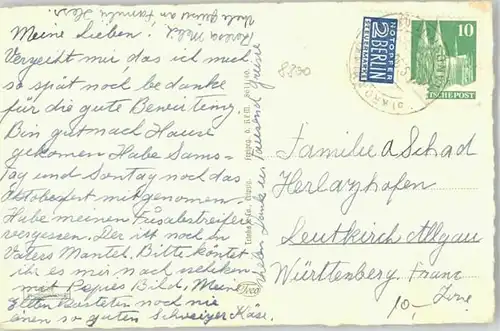 Meine Lieben.
Verzeiht mir das ich mich
so spät noch bedanke
für die gute Bewirtung.
Bin gut nach Hause
gekomen Habe Sams-
tag und Sonntag noch das
Oktoberfest mitgenomen.
Habe meinen Frisalerstreifen
vergessen. Der ist noch in
Vaters Mantel. Bitte köntet
ihr es mir nach schicken
mit Pepies Bild. Meine
Eltern kosteten noch nie
einen so guten Schweizer Käse.
Vielen Dank u. Tausend Grüsse
Viele Grüsse an Familie
8970
NOTOPFER
2 BERLIN
STEUERMARKE
10
DEUTSCHE POST
Familie A Schad
Herlazhofen
Leutkirch Allgäu
Württemberg Franz
Zone
10,